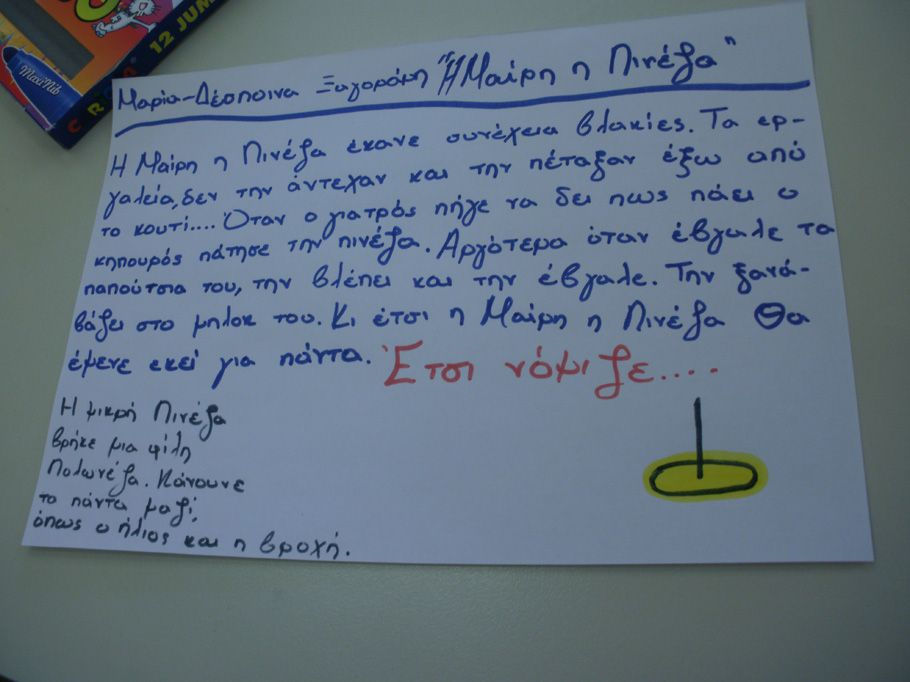 MaxiNib
12 JUM
Μαρία-Δέσποινα Ξαγοράρη "Η Μαίρη η Πινέζα"
Η Μαίρη η Πινέζα έκανε συνέχεια βλακίες. Τα ερ-
γαλεία, δεν την άντεχαν και την πέταξαν έξω από
το κουτί.... Όταν ο γιατρός πήγε να δει πως πάει ο
κηπουρός πάτησε την πινέζα. Αργότερα όταν έβγαλε τα
παπούτσια του, την βλέπει και την έβγαλε. Την ξανά-
βάζει στο μπλοκ του. Κι έτσι η Μαίρη η Πινέζα θα
έμενε εκεί για πάντα. Έτσι νόμιζε....
Η μικρή Πινέζα
βρήκε μια φίλη
Πολωνέζα. Κάνουνε
τα πάντα μαζί,
όπως ο ήλιος και η βροχή.